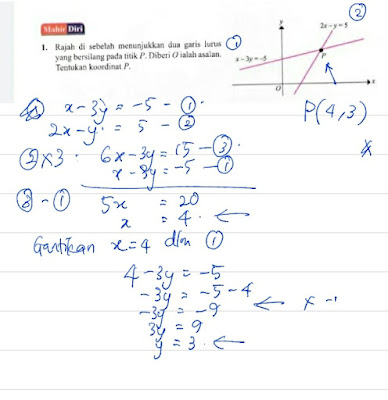 ②
Mahir Diri
1. Rajah di sebelah menunjukkan dua garis lurus ①
yang bersilang pada titik P. Diberi O ialah asalan.
Tentukan koordinat P.
y
2x – y = 5
x – 3y = –5
P
O
x
P(4,3)
x - 3y = -5 - ①
2x - y = 5 - ②
②x3. 6x - 3y = 15 - ③
x - 3y = -5 - ①
③ - ① 5x = 20
x = 4. ←
Gantikan x=4 dlm ①
4 - 3y = -5
-3y = -5 - 4
-3y = -9 ← x -1
3y = 9
y = 3. ←